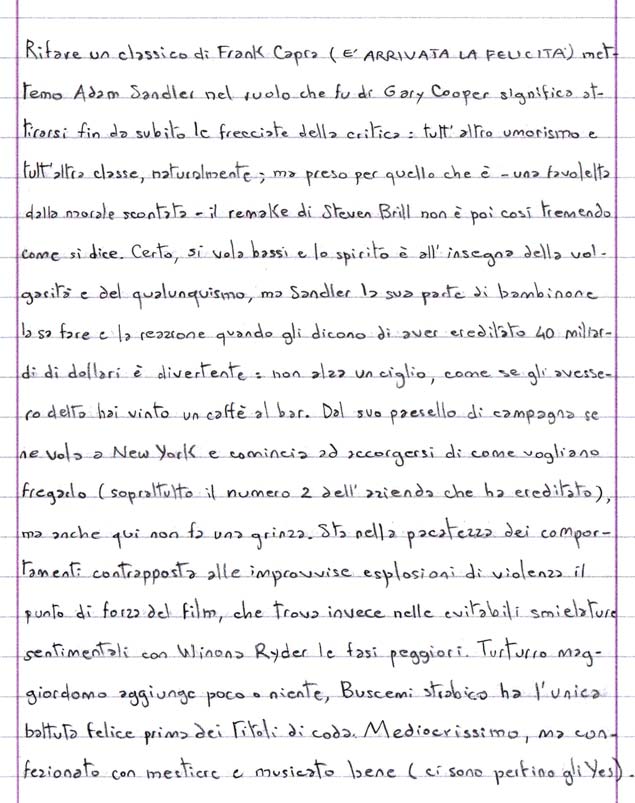 Rifare un classico di Frank Capra (E' ARRIVATA LA FELICITA') met-
temo Adam Sandler nel ruolo che fu di Gary Cooper significa at-
tirarsi fin da subito le frecciate della critica: tutt'altro umorismo e
tutt'altra classe, naturalmente; ma preso per quello che è - una favoletta
dalla morale scontata - il remake di Steven Brill non è poi così tremendo
come si dice. Certo, si vola bassi e lo spirito è all'insegna della vol-
garità e del qualunquismo, ma Sandler la sua parte di bambinone
la sa fare e la reazione quando gli dicono di aver ereditato 40 miliar-
di di dollari è divertente: non alza un ciglio, come se gli avesse-
ro detto hai vinto un caffè al bar. Dal suo paesello di campagna se
ne vola a New York e comincia ad accorgersi di come vogliano
fregarlo (soprattutto il numero 2 dell'azienda che ha ereditato),
ma anche qui non fa una grinza. Sta nella pacatezza dei compor-
tamenti contrapposta alle improvvise esplosioni di violenza il
punto di forza del film, che trova invece nelle evitabili smielature
sentimentali con Winona Ryder le fasi peggiori. Turturro mag-
giordomo aggiunge poco o niente, Buscemi strabico ha l'unica
battuta felice prima dei titoli di coda. Mediocrissimo, ma con-
fezionato con mestiere e musicato bene (ci sono perfino gli Yes).